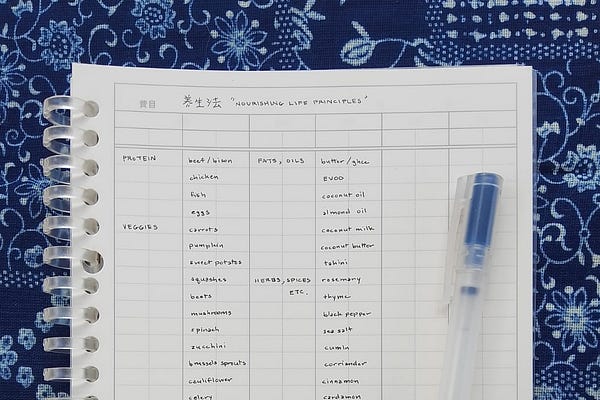 費目 养生法 "NOURISHING LIFE PRINCIPLES"
PROTEIN beef/bison FATS, OILS butter/ghee
chicken EVOO
fish coconut oil
eggs almond oil
VEGGIES carrots coconut milk
pumpkin coconut butter
sweet potatos tahini
squashes HERBS, SPICES rosemary
beets ETC. thyme
mushrooms black pepper
spinach sea salt
zucchini cumin
brussels sprouts corriander
cauliflower cinnamon
celery cardamon